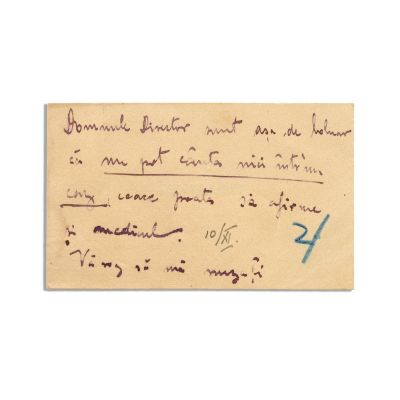 Domnule Director sunt așa de bolnav
că nu pot cânta nici într'un
caz, ceace poate să afirme
și medicul. 10/XI.
Vă rog să mă